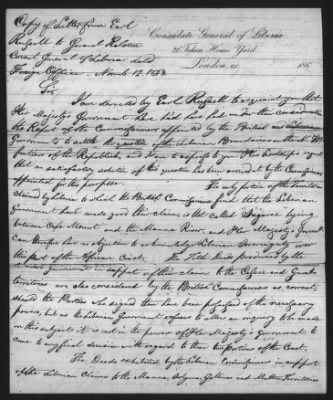 Copy of Letter from Earl
Russell to Gerard Ralston
Consul General of Liberia dated
Foreign Office, March 12, 1863
Consulate General of Liberia
21, Token House Yard
London, EC. 186
Sir
I am directed by Earl Russell to acquaint you that
Her Majesty's Government have had under their consideration
the Report of the Commissioners appointed by the British and Liberian
Governments to settle the question of the Liberian Boundaries on the
frontiers of the Republic, and I am to express to you His Lordship's regret
that no satisfactory solution of the question has been arrived at by the Commissioners
appointed for the purpose. The only portion of the territories
claimed by Liberia to which the British Commissioners find that the Liberian
Government have made good their claims is that called Sugaree lying
between Cape Mount and the Manna River, and Her Majesty's Government
can therefore have no objection to acknowledge Liberian Sovereignty over
this part of the African Coast. The Title Deeds produced by the
Government in support of their claim to the Cassa and Gumbo
territories are also considered by the British Commissioners as correct,
should the Parties who signed them have been possessed of the necessary
powers, but as the Liberian Government refuses to allow an inquiry to be made
on this subject it is not in the power of Her Majesty's Government to
come to any final decision with regard to these two portions of the Coast.
The Deeds exhibited by the Liberian Commissioners in support
of the Liberian Claims to the Manna, Solyma, Gallinas and Muttru Territories